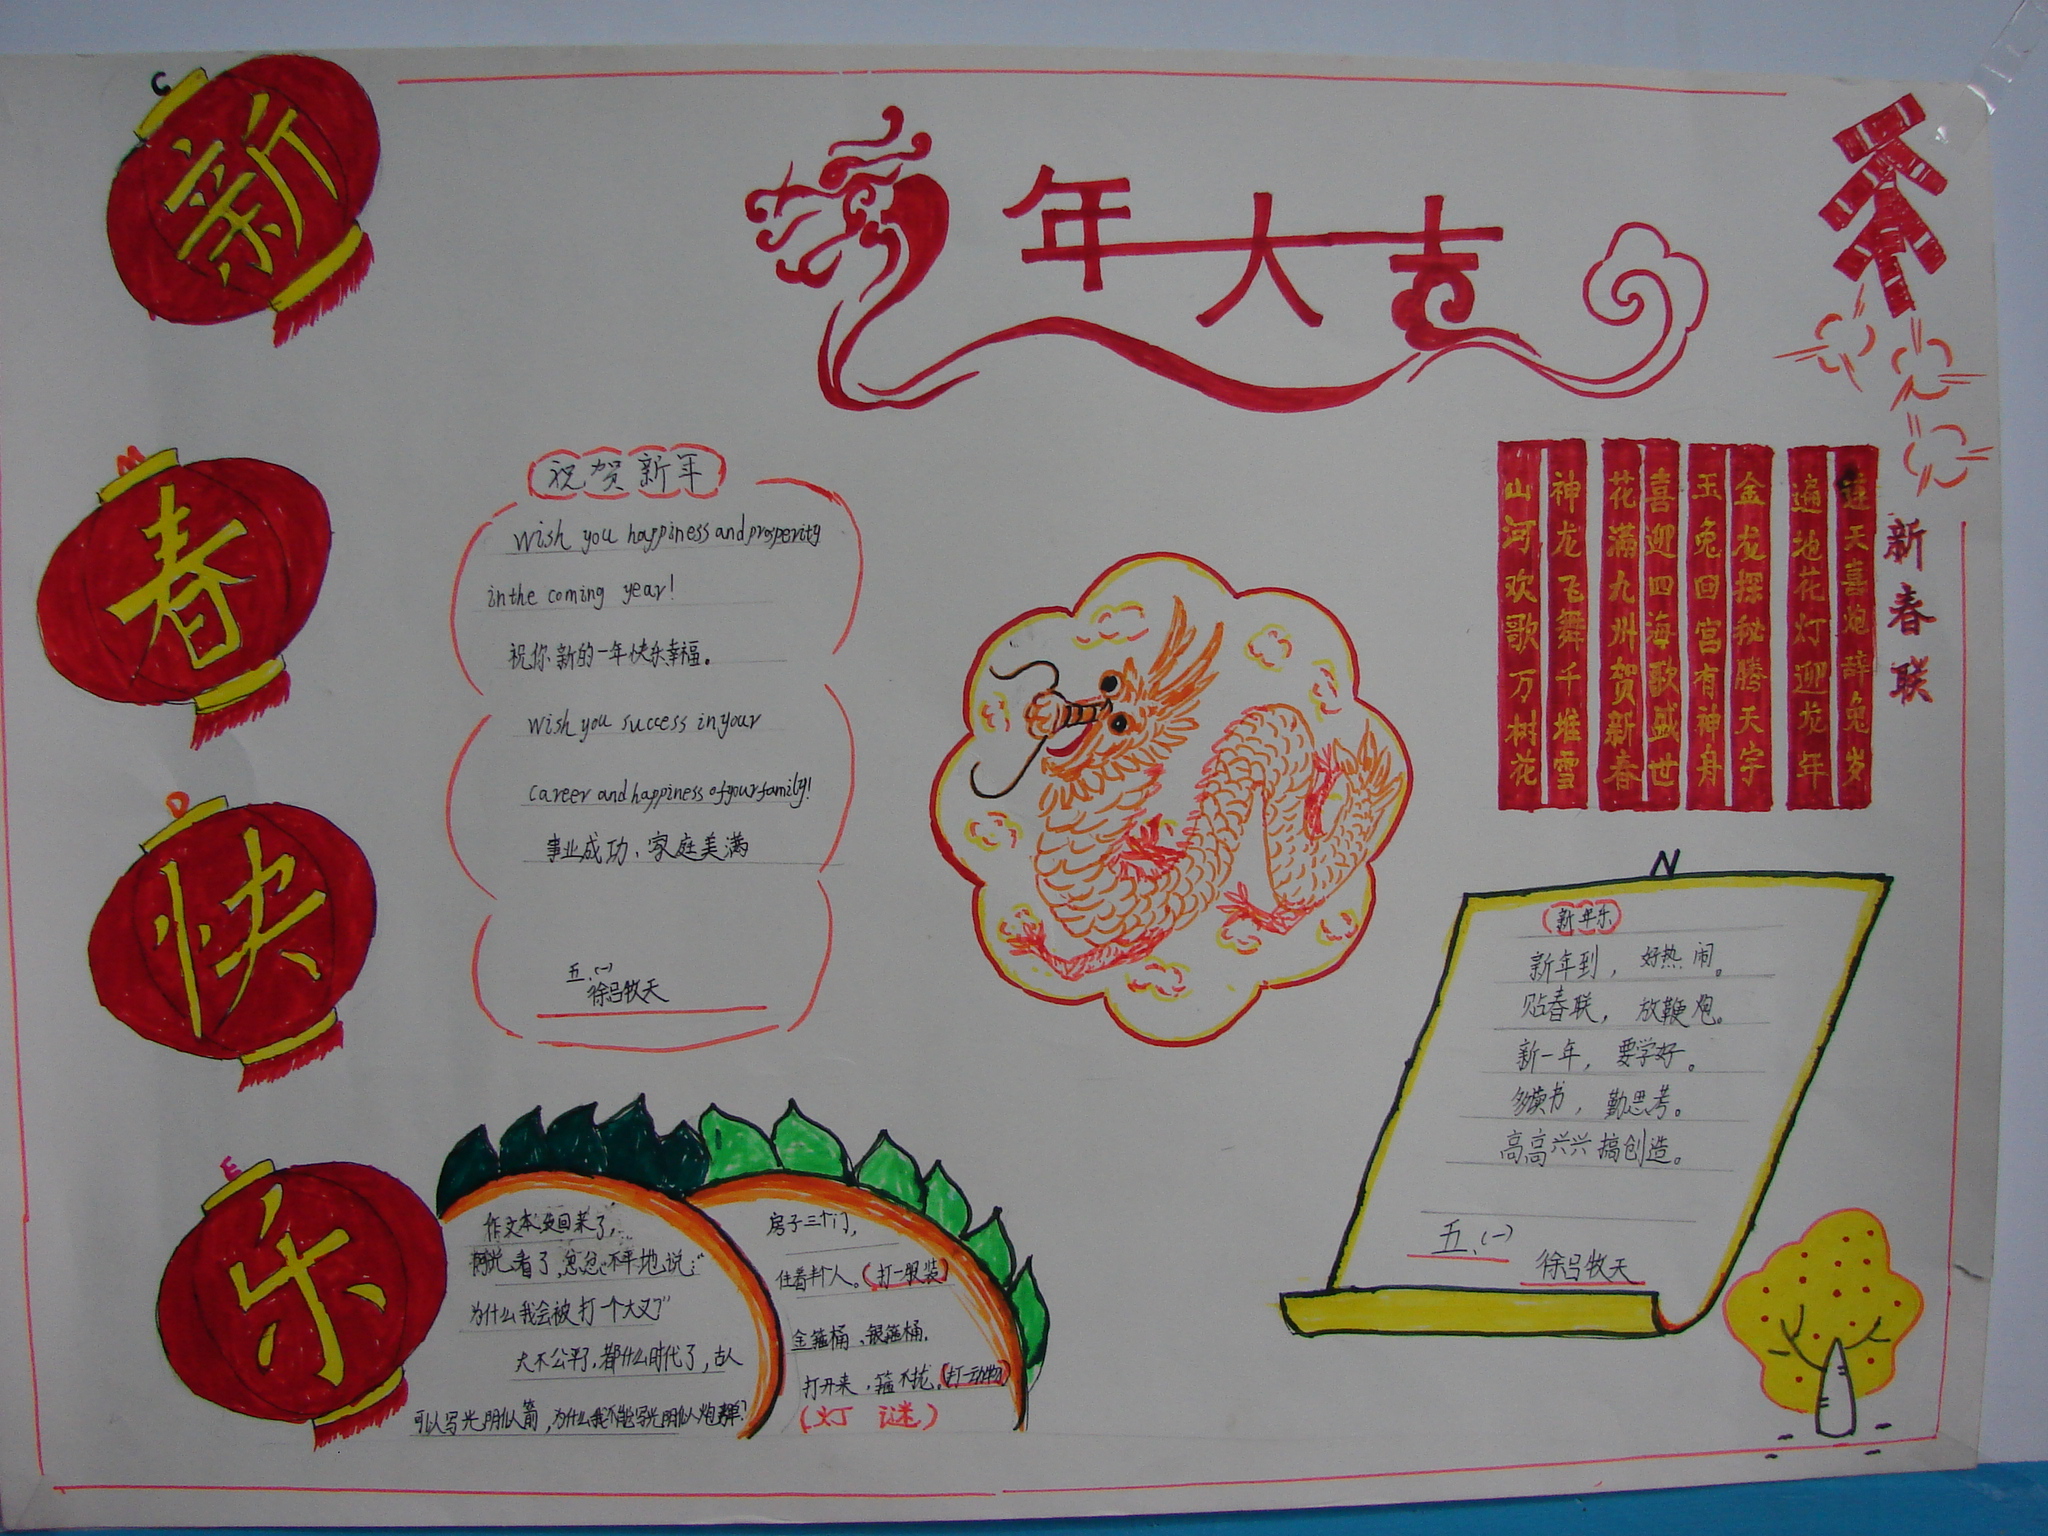 新
春
快
乐
年大吉
祝贺新年
Wish you happiness and prosperity
in the coming year!
祝你新的一年快乐幸福。
Wish you success in your
career and happiness of your family!
事业成功、家庭美满
五.(一)
徐吕牧天
新春联
连天喜炮辞兔岁
遍地花灯迎龙年
金龙探秘腾天宇
玉兔回宫有神舟
喜迎四海歌盛世
花满九州贺新春
神龙飞舞千堆雪
山河欢歌万树花
新年乐
新年到，好热闹。
贴春联，放鞭炮。
新一年，要学好。
多读书，勤思考。
高高兴兴搞创造。
五.(一)
徐吕牧天
作文本发回来了，
看了，忿忿不平地说：“
为什么我会被打一个大叉”
大不公平了，都什么时代了，古人
可以写光阴似箭，为什么我不能写光阴似炮弹？
房子三个门，
住着半个人。(打一服装)
金箍桶、银箍桶，
打开来，箍不拢。(打一动物)
(灯谜)
C
M
D
E
N